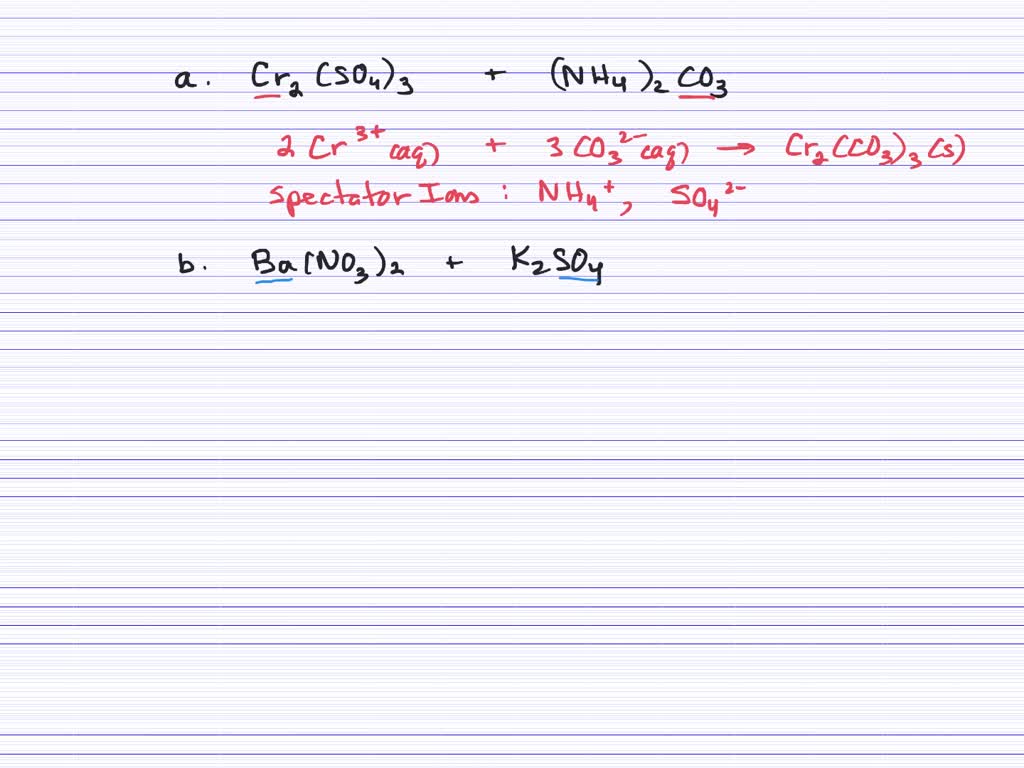 a. Cr₂(SO₄)₃ + (NH₄)₂CO₃
2 Cr³⁺(aq) + 3 CO₃²⁻(aq) → Cr₂(CO₃)₃(s)
Spectator Ions : NH₄⁺, SO₄²⁻
b. Ba(NO₃)₂ + K₂SO₄